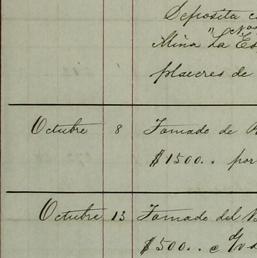 Deposita
Mina La
placeres de
Octubre 8 Tomado de
$1500.. por
Octubre 13 Tomado del
$500..